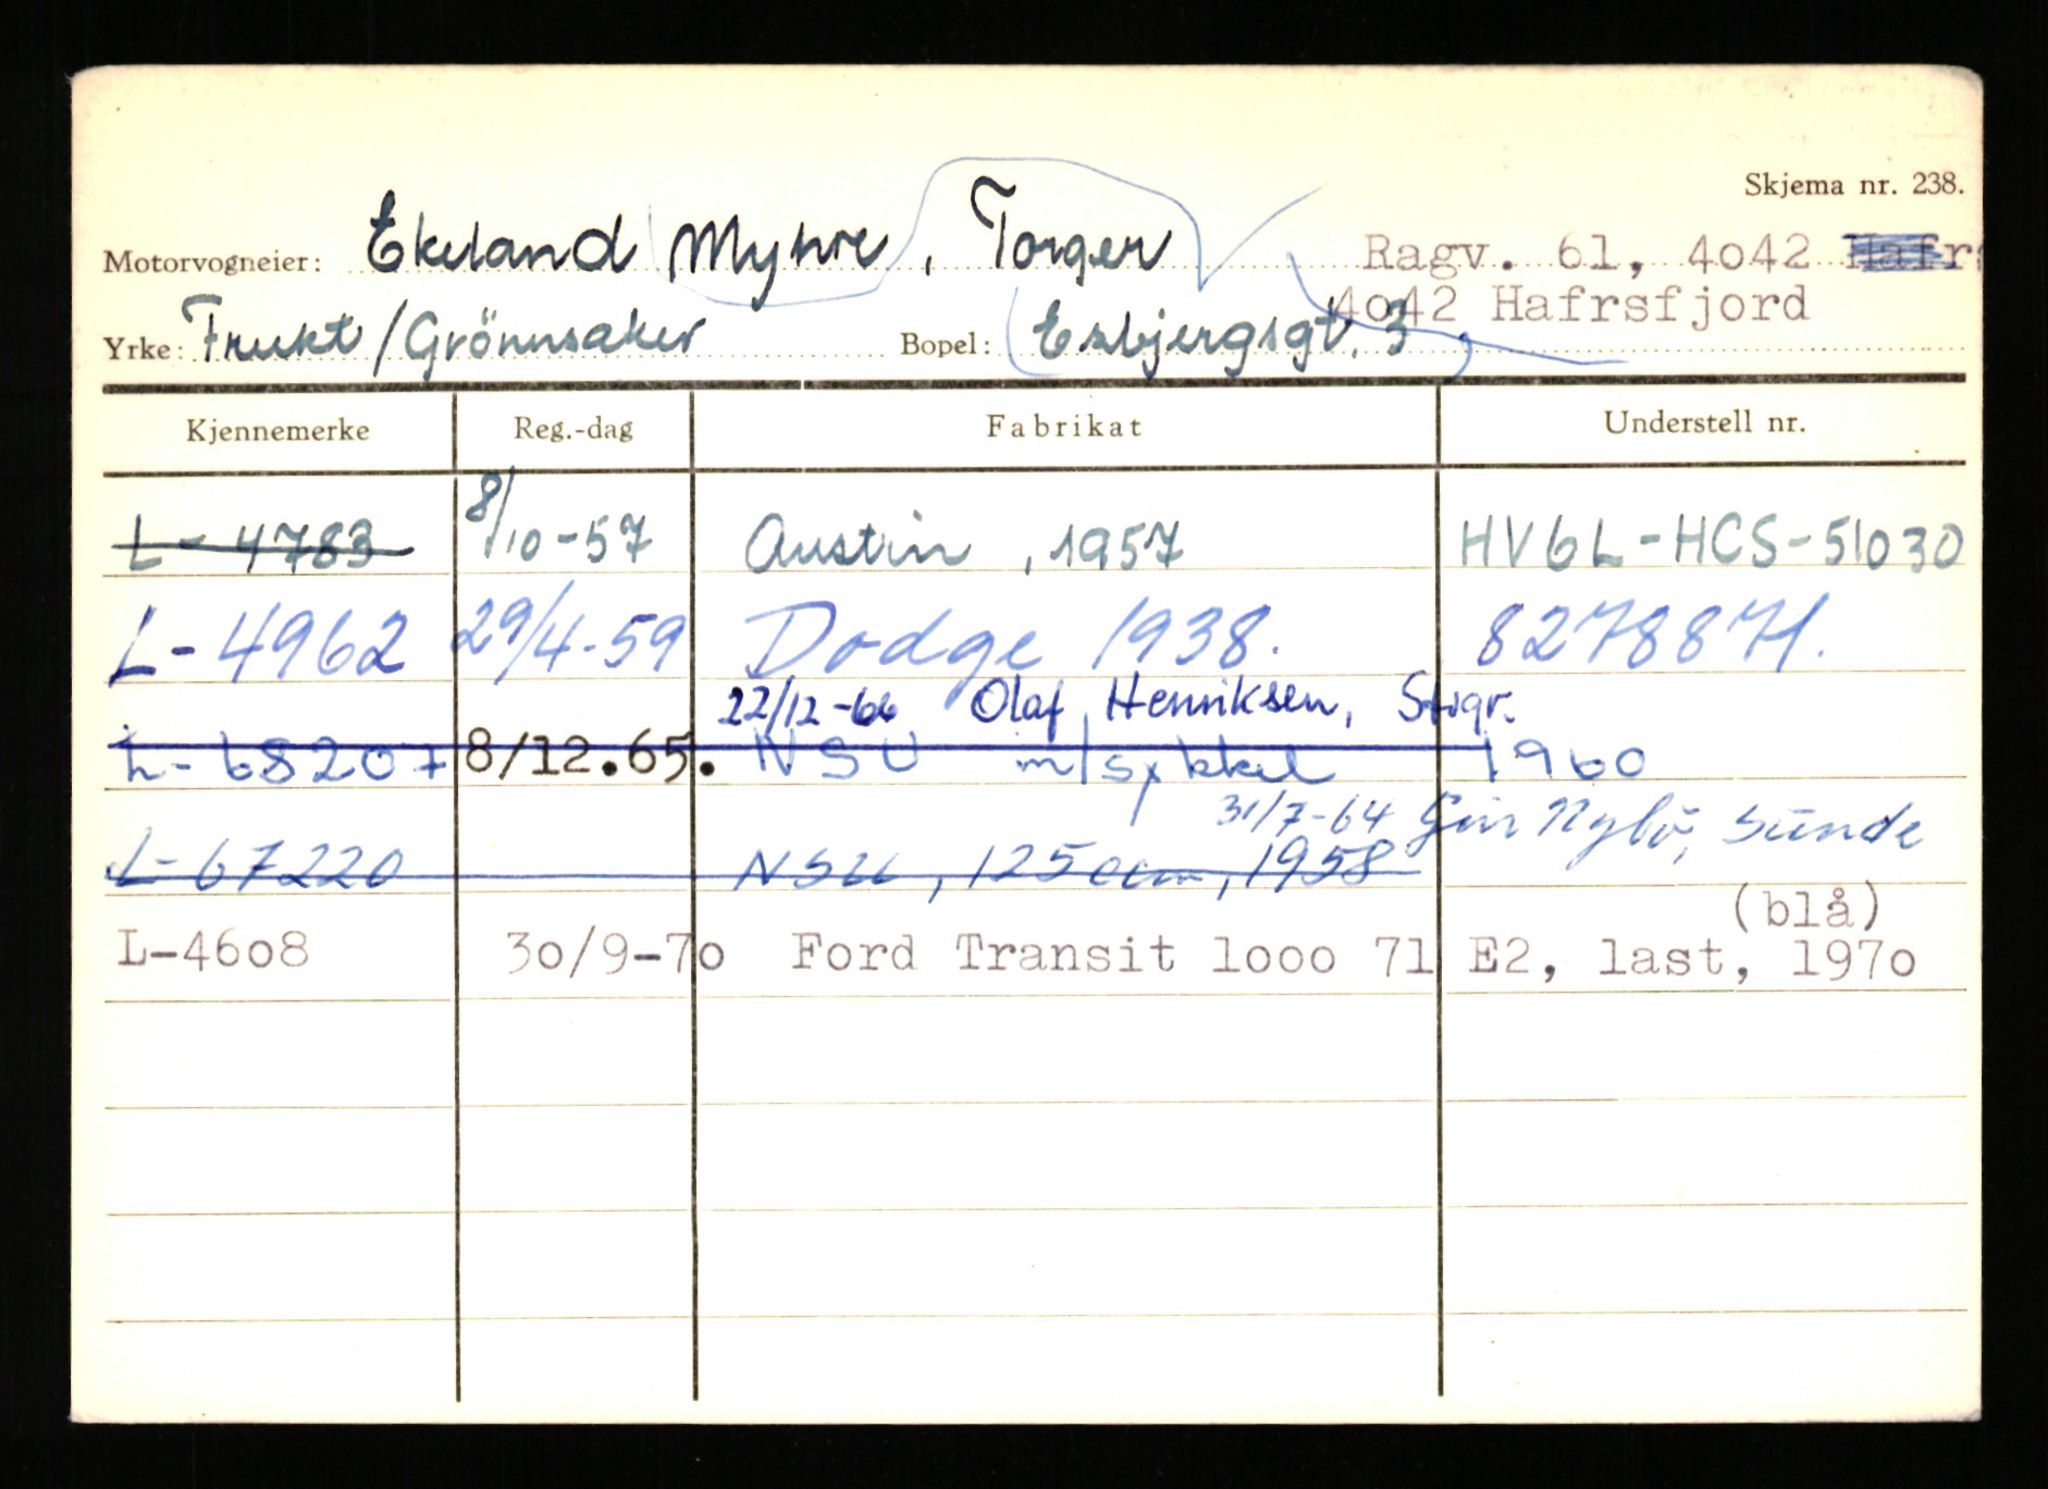 Skjema nr. 238.
Motorvogneier: Ekeland Myhre, Torger Ragv. 61, 4o42 Hafrs
4o42 Hafrsfjord
Yrke: Frukt/Grönnsaker Bopel: Esbjergsgt. 3
Kjennemerke Reg.-dag Fabrikat Understell nr.
L-4783 8/10-57 Austin, 1957 HV6L-HCS-51030
L-4962 29/4-59 Dodge 1938. 8278871.
22/12-66 Olaf Henriksen, Stvgr.
L-68207 8/12.65. NSU m/sykkel 1960
31/7-64 Geir Nybö, Sunde
L-67220 NSU, 125 ccm, 1958
(blå)
L-46o8 3o/9-7o Ford Transit looo 71 E2, last, 197o